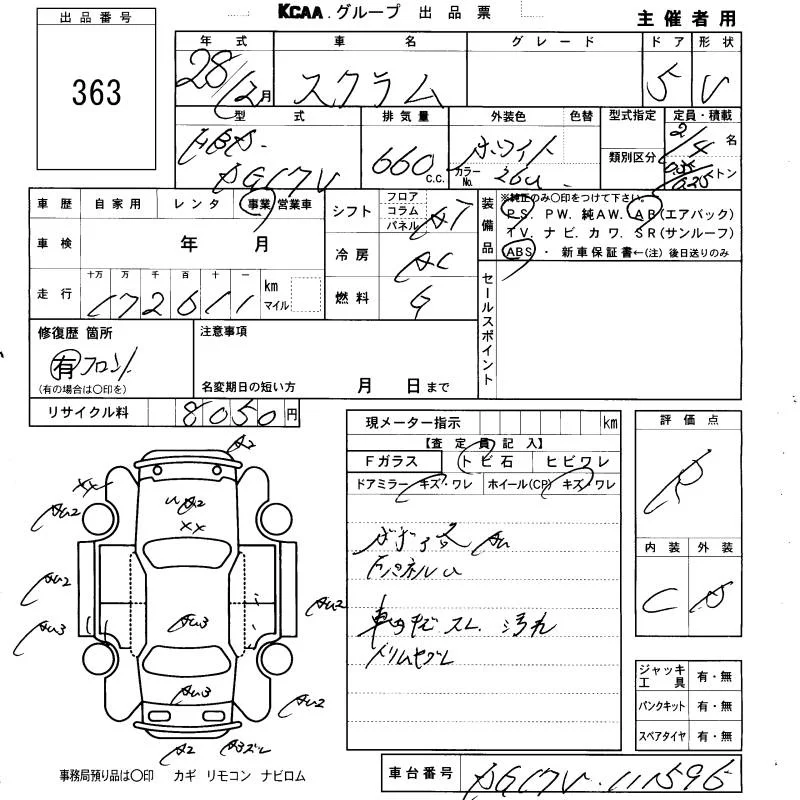 KCAA.グループ 出品票
主催者用
出品番号
363
年式 車名 グレード ドア 形状
28/12月 スクラム 5 V
型式 排気量 外装色 色替 型式指定 定員・積載
HBD-
DG17V 660 C.C. ホワイト カラーNo. 26U 類別区分 2/4名
0.35/0.25トン
車歴 自家用 レンタ 事業 営業車
シフト フロア コラム パネル AT
装備品 ※純正のみ○印をつけて下さい。
PS. PW. 純AW. AB(エアバック)
TV. ナビ. カワ. SR(サンルーフ)
ABS・新車保証書←(注) 後日送りのみ
車検 年 月
冷房 AC
走行 十万 万 千 百 十 一
172611 km マイル
燃料 G
セールスポイント
修復歴 箇所
有 フロント
(有の場合は○印を)
注意事項
名変期日の短い方 月 日まで
リサイクル料 8050円
現メーター指示 km
【査定員記入】
Fガラス トビ石 ヒビワレ
ドアミラー キズ・ワレ ホイール(CP) キズ・ワレ
ボディ各 AU
FパネルU
車内キズ スレ 汚れ
トリムセグレ
評価点
R
内装 外装
C D
ジャッキ工具 有・無
パンクキット 有・無
スペアタイヤ 有・無
A2
XX
AU2
U A2
XX
AU2
AU3
AU2
AU3
AU3
AU2
A2
A3ズレ
事務局預り品は○印 カギ リモコン ナビロム
車台番号 DG17V-111596